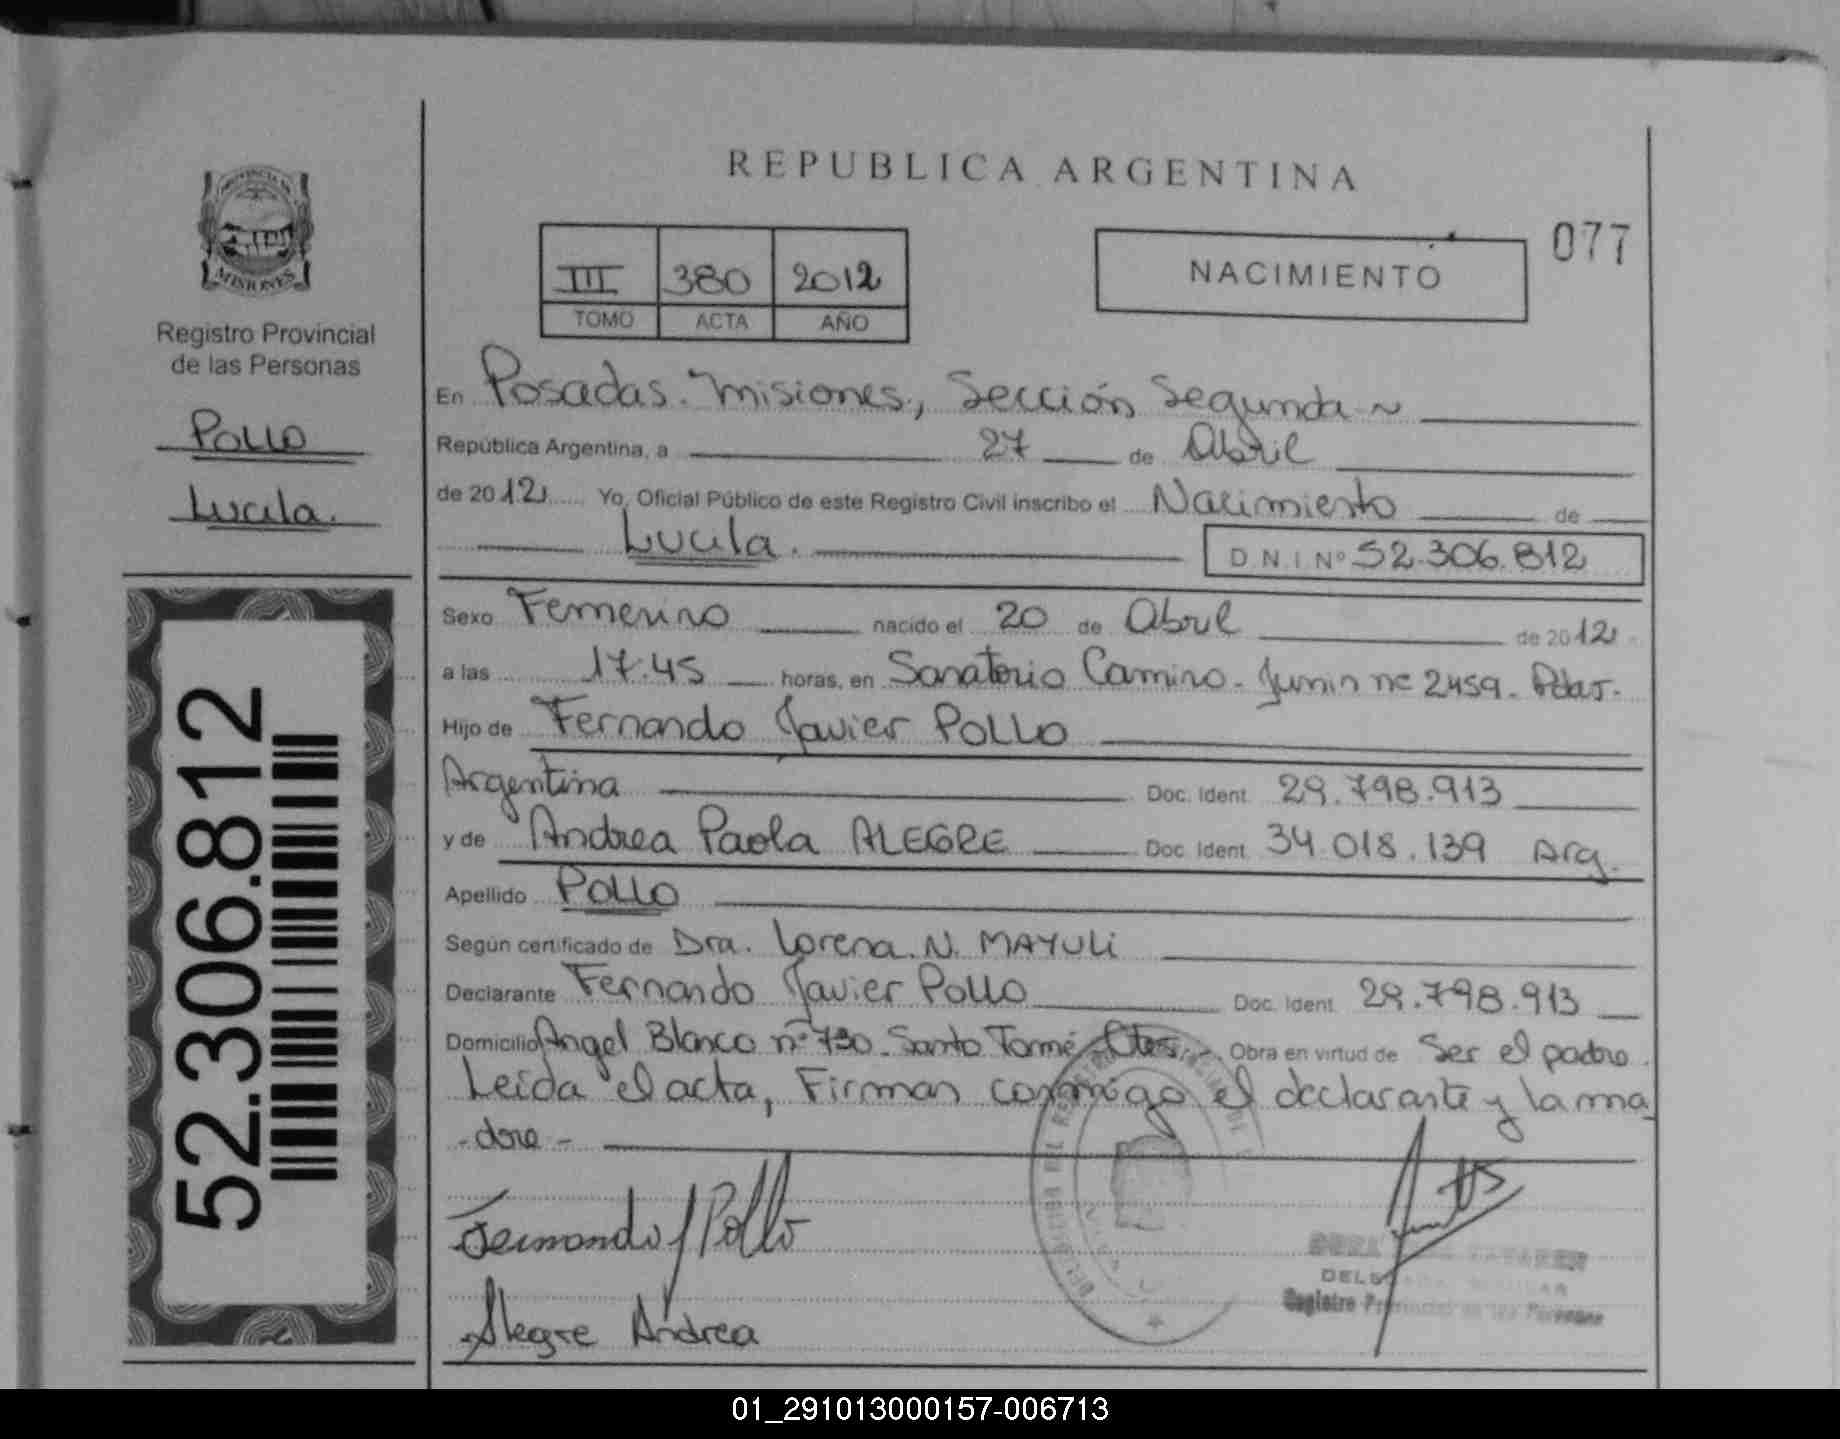 REPUBLICA ARGENTINA
077
III 380 2012
TOMO ACTA AÑO
NACIMIENTO
PROVINCIA DE
MISIONES
Registro Provincial
de las Personas
Pollo
Lucila.
52.306.812
En Posadas. Misiones, Sección Segunda ~
República Argentina, a 27 de Abril
de 2012 Yo, Oficial Público de este Registro Civil inscribo el Nacimiento de
Lucila. D.N.I Nº 52.306.812
Sexo Femenino nacido el 20 de Abril de 2012
a las 17.45 horas, en Sanatorio Camino - Junin nº 2459. Pdas.
Hijo de Fernando Javier POLLO
Argentina Doc. Ident. 29.798.913
y de Andrea Paola ALEGRE Doc. Ident. 34.018.139 Arg.
Apellido POLLO
Según certificado de Dra. Lorena. N. MAYULI
Declarante Fernando Javier Pollo Doc. Ident. 29.798.913
Domicilio Angel Blanco nº 730. Santo Tomé - Ctes. Obra en virtud de Ser el padre.
Leída el acta, Firman conmigo el declarante y la ma
-dre -
Fernando J Pollo
Alegre Andrea
Registro Provincial de las Personas
01_291013000157-006713